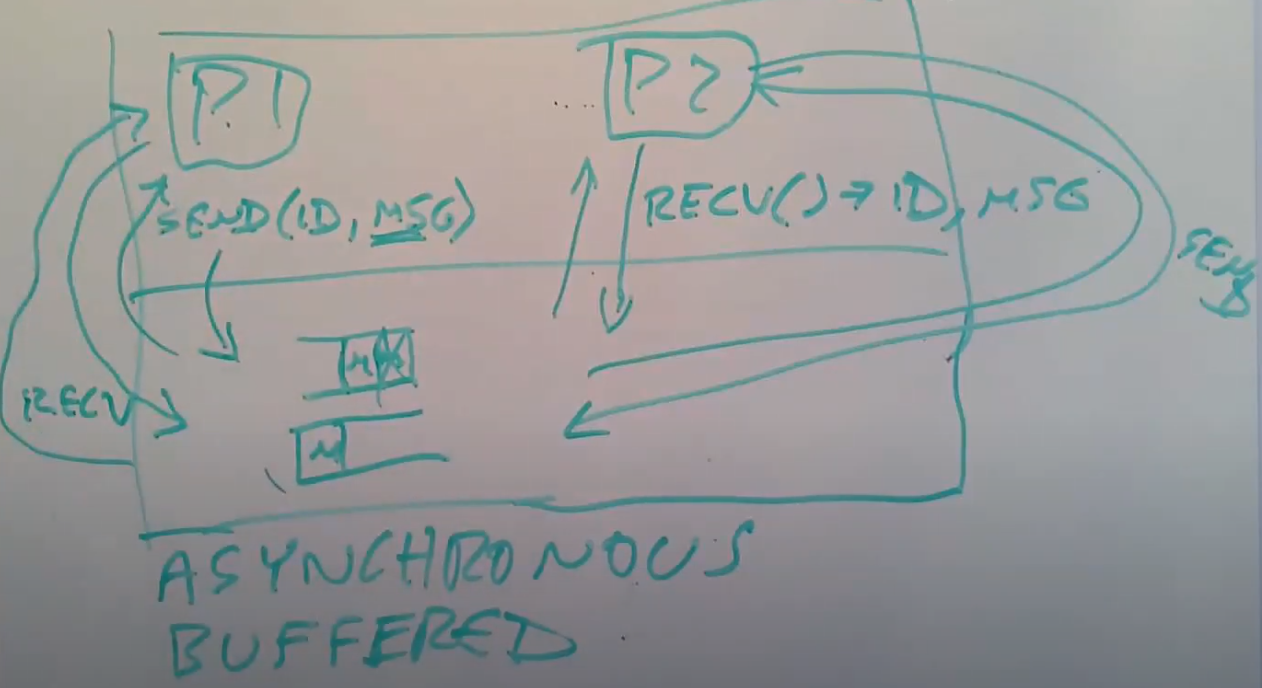 P1
P2
SEND(ID, MSG)
RECV() → ID, MSG
SEND
RECV
M
M
ASYNCHRONOUS
BUFFERED